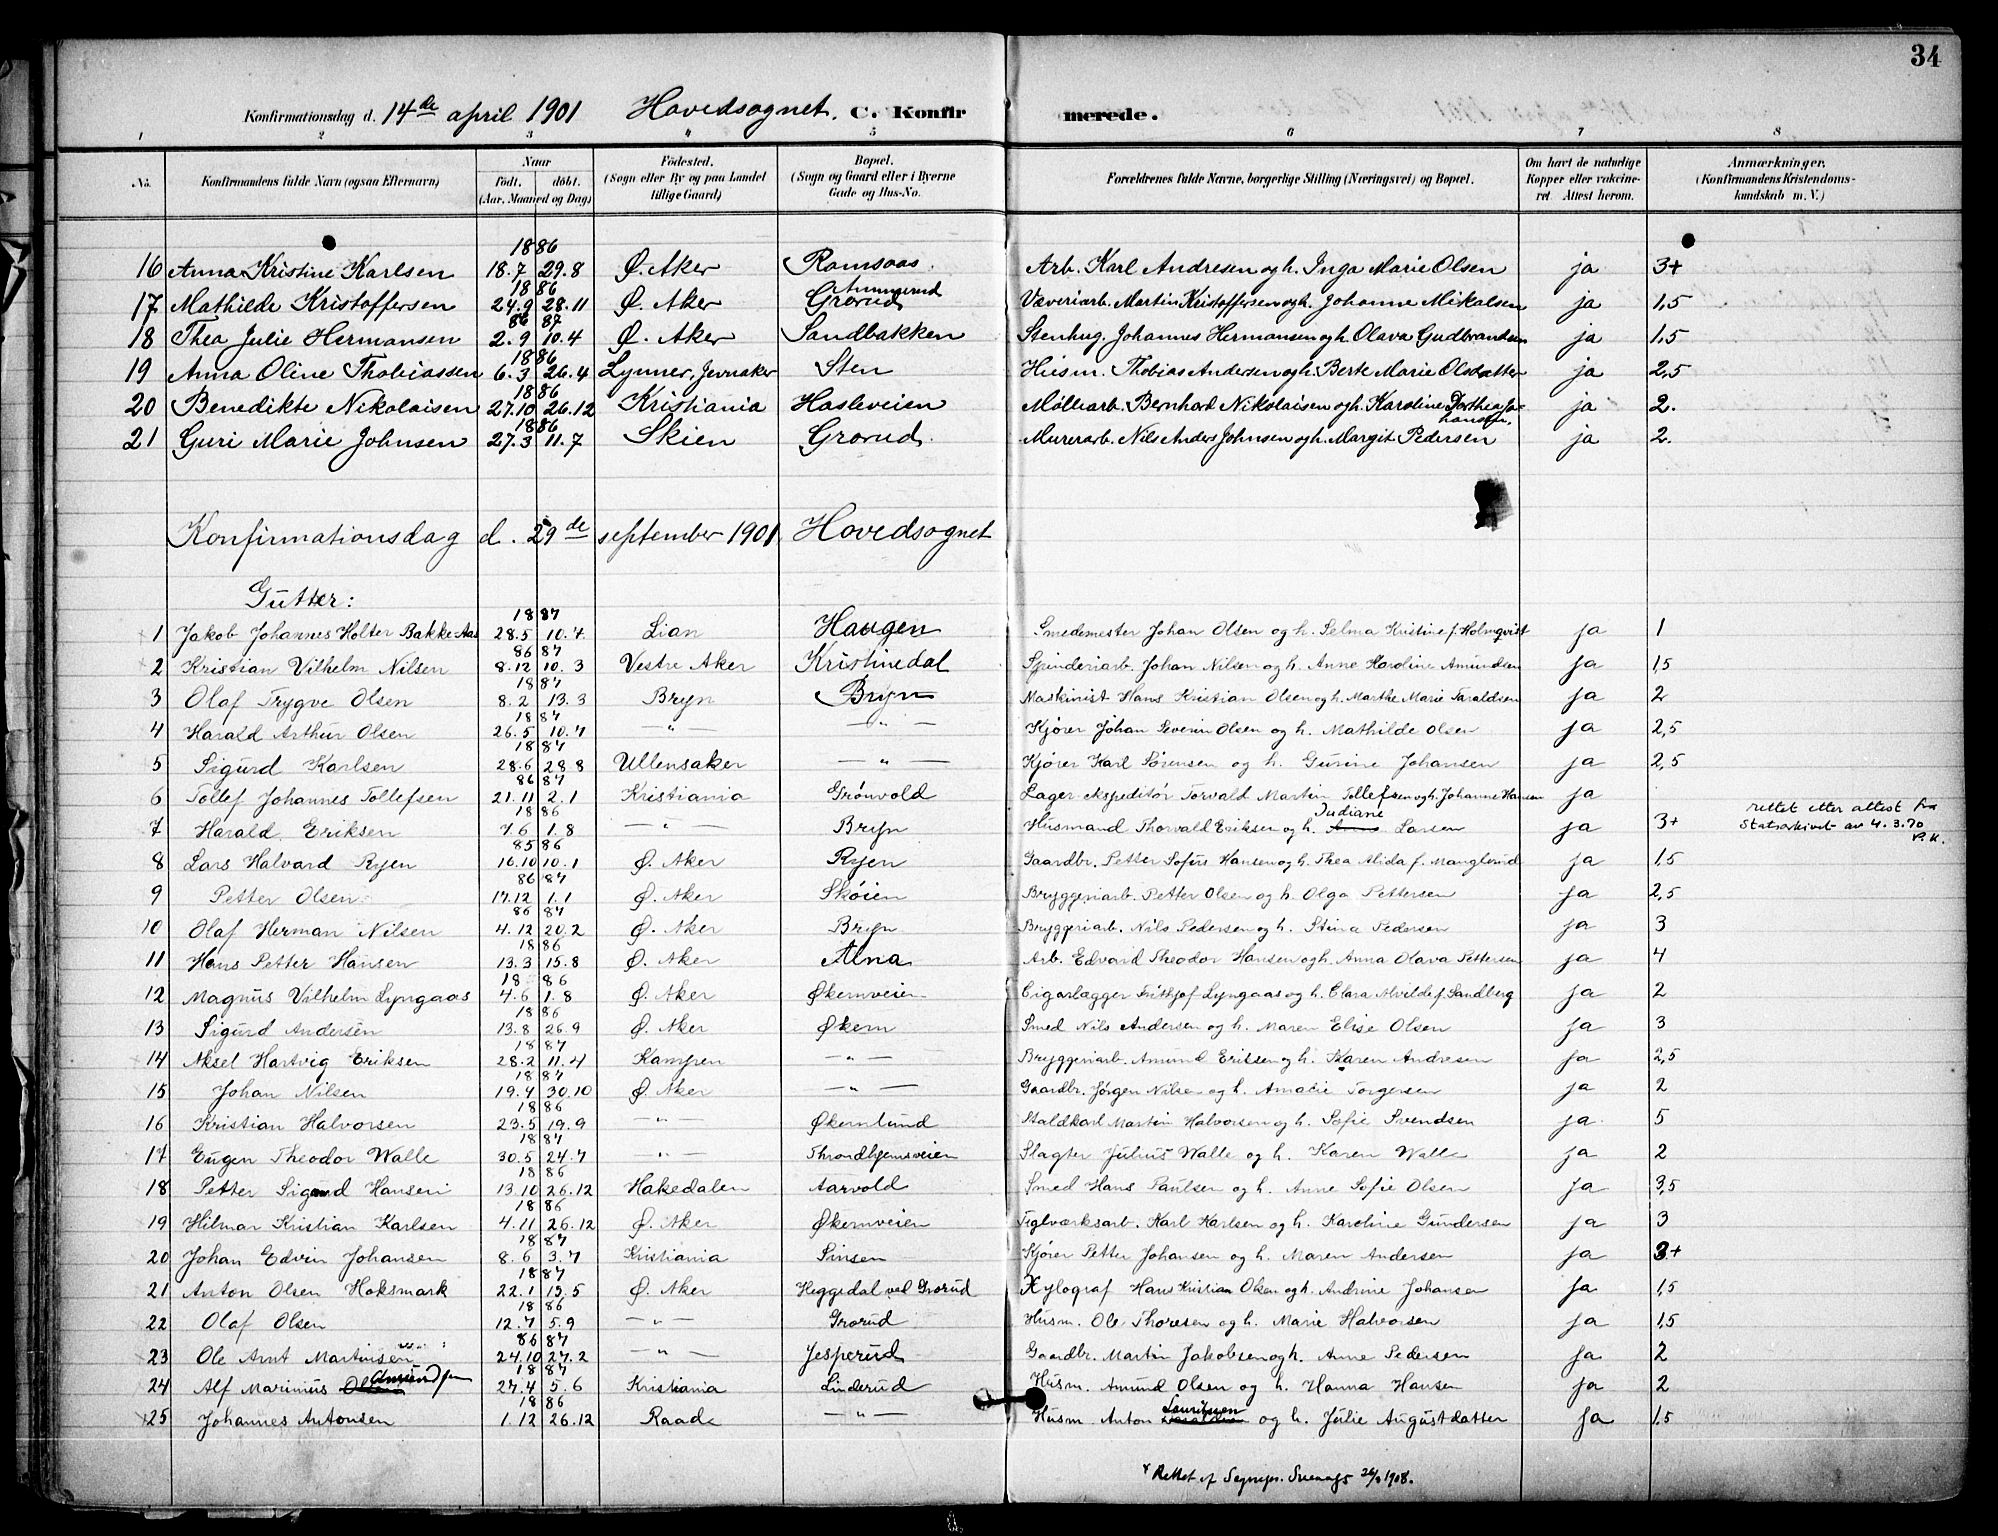 34
Konfirmationsdag d. 14de april 1901 Hovedsognet. C. Konfirmerede.
1 2 3 4 5 6 7 8
No. Konfirmandens fulde Navn (ogsaa Efternavn) Naar født. døbt. (Aar, Maaned og Dag) Födested. (Sogn eller By og paa Landet tillige Gaard) Bopæl. (Sogn og Gaard eller i Byerne Gade og Hus-No. Forældrenes fulde Navne, borgerlige Stilling (Næringsvei) og Bopæl. Om havt de naturlige Kopper eller vakcineret. Attest herom. Anmærkninger, (Konfirmandens Kristendomskundskab m. V.)
1886
16 Anna Kristine Karlsen 18.7 29.8 Ø. Aker Ramsaas. Arb. Karl Andresen og h. Inga Marie Olsen ja 3+
1886
17 Mathilde Kristoffersen 24.9 28.11 Ø. Aker Grorud Væveriarb. Martin Kristoffersen og h. Johanne Mikalsen ja 1,5
86 87
18 Thea Julie Hermansen 2.9 10.4 Ø. Aker Sandbakken Stenhug. Johannes Hermansen og h. Olava Gudbrandsen ja 1,5
1886
19 Anna Oline Thobiassen 6.3 26.4 Lynner, Jevnaker Sten Husm. Thobias Andersen og h. Berte Marie Olsdatter ja 2,5
1886
20 Benedikte Nikolaisen 27.10 26.12 Kristiania Hasleveien Møllearb. Bernhard Nikolaisen og h. Karoline Dorthea Johansen. ja 2.
1886
21 Guri Marie Johnsen 27.3 11.7 Skien Grorud. Murerarb. Nils Anders Johnsen og h. Margit Pedersen ja 2.
Konfirmationsdag d. 29de september 1901 Hovedsognet
Gutter:
1887
1 Jakob Johannes Holter Bakke-Aas 28.5 10.7 Lian Haugen Smedemester Johan Olsen og h. Selma Kristine f. Holmqvist ja 1
86 87
2 Kristian Vilhelm Nilsen 8.12 10.3 Vestre Aker Kristinedal Spinderiarb. Johan Nilsen og h. Anne Karoline Amundsen ja 1,5
1887
3 Olaf Trygve Olsen 8.2 13.3 Bryn Bryn Maskinist Hans Kristian Olsen og h. Marthe Marie Taraldsen ja 2
1887
4 Harald Arthur Olsen 26.5 10.7 — " — — " — Kjører Johan Severin Olsen og h. Mathilde Olsen ja 2,5
1887
5 Sigurd Karlsen 28.6 28.8 Ullensaker — " — Kjører Karl Sørensen og h. Gurine Johansen ja 2,5
86 87
6 Tollef Johannes Tollefsen 21.11 2.1 Kristiania Grønvold Lager ekspeditør Torvald Martin Tollefsen og h. Johanne Hansen ja
1886
7 Harald Eriksen 7.6 1.8 — " — Bryn Husmand Thorvald Eriksen og h. Indiane Larsen ja 3+ rettet etter attest fra Statsarkivet av 4.3.70 P.K.
85 86
8 Lars Halvard Ryen 16.10 10.1 Ø. Aker Ryen Gaardbr. Petter Sofus Hansen og h. Thea Alida f. Manglerud ja 1,5
86 87
9 Petter Olsen 17.12 1.1 Ø. Aker Skøien Bryggeriarb. Petter Olsen og h. Olga Pettersen ja 2,5
86 87
10 Olaf Herman Nilsen 4.12 20.2 Ø. Aker Bryn Bryggeriarb. Nils Pedersen og h. Stina Pedersen ja 3
1886
11 Hans Petter Hansen 13.3 15.8 Ø. Aker Alna Arb. Edvard Theodor Hansen og h. Anna Olava Pettersen ja 4
1886
12 Magnus Vilhelm Lyngaas 4.6 1.8 Ø. Aker Økernveien Cigarlægger Frithjof Lyngaas og h. Clara Alvilde f. Sandberg ja 2
1886
13 Sigurd Andersen 13.8 26.9 Ø. Aker Økern Smed Nils Andersen og h. Maren Elise Olsen ja 3
1887
14 Aksel Hartvig Eriksen 28.2 11.4 Kampen — " — Bryggeriarb. Amund Eriksen og h. Karen Andresen ja 2,5
1887
15 Johan Nilsen 19.4 30.10 Ø. Aker — " — Gaardbr. Jørgen Nilsen og h. Amalie Torgersen ja 2
1886
16 Kristian Halvorsen 23.5 19.9 — " — Økernlund Staldkarl Martin Halvorsen og h. Sofie Svendsen ja. 5
1887
17 Eugen Theodor Walle 30.5 24.7 — " — Throndhjemsveien Slagter Julius Walle og h. Karen Walle ja 2
1886
18 Petter Sigurd Hansen 13.10 26.12 Hakedalen Aarvold Smed Hans Paulsen og h. Anne Sofie Olsen ja 3,5
1886
19 Hilmar Kristian Karlsen 4.11 26.12 Ø. Aker Økernveien Teglværksarb. Karl Karlsen og h. Karoline Gundersen ja 3
1887
20 Johan Edvin Johansen 8.6 3.7 Kristiania Sinsen Kjører Petter Johansen og h. Maren Andersen ja 3+
1887
21 Anton Olsen Hoksmark 22.1 15.5 Ø. Aker Heggedal ved Grorud Xylograf Hans Kristian Olsen og h. Andrine Johansen ja 1,5
1886
22 Olaf Olsen 12.7 5.9 — " — Grorud Husm. Ole Thoresen og h. Marie Halvorsen ja 1,5
86 87
23 Ole Arnt Martinsen 24.10 27.2 — " — Jesperud Gaardbr. Martin Jakobsen og h. Anne Pedersen ja 2
1887
24 Alf Marinius Olsen Amundsen 27.4 5.6 Kristiania Linderud Husm. Amund Olsen og h. Hanna Hansen ja 2
1886
25 Johannes Antonsen 1.12 26.12 Raade — " — Husm Anton Lauritsen og h. Julie Augustdatter ja 1,5